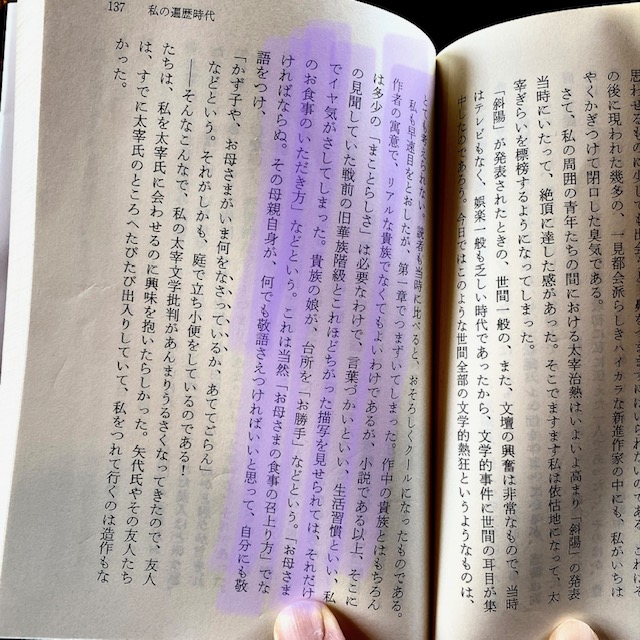 思われるもの
の後に現われた幾多の、一見都会派らしきハイカラな新進作家の中にも、私がいちは
やくかぎつけて閉口した臭気である。
さて、私の周囲の青年たちの間における太宰治熱はいよいよ高まり「斜陽」の発表
当時にいたって、絶頂に達した感があった。そこでますます私は依怙地になって、太
宰ぎらいを標榜するようになってしまった。
「斜陽」が発表されたときの、世間一般の、また、文壇の興奮は非常なもので、当時
はテレビもなく、娯楽一般も乏しい時代であったから、文学的事件に世間の耳目が集
中したのであろう。今日ではこのような世間全部の文学的熱狂というようなものは、
137 私の遍歴時代
とても考えられない。読者も当時に比べると、おそろしくクールになったものである。
私も早速目をとおしたが、第一章でつまずいてしまった。作中の貴族とはもちろん
作者の寓意で、リアルな貴族でなくてもよいわけであるが、小説である以上、そこに
は多少の「まことらしさ」は必要なわけで、言葉づかいといい、生活習慣といい、私
の見聞していた戦前の旧華族階級とこれほどちがった描写を見せられては、それだけ
でイヤ気がさしてしまった。貴族の娘が、台所を「お勝手」などという。「お母さま
のお食事のいただき方」などという。これは当然「お母さまの食事の召上り方」でな
ければならぬ。その母親自身が、何でも敬語さえつければいいと思って、自分にも敬
語をつけ、
「かず子や、お母さまがいま何をなさっているか、あててごらん」
などという。それがしかも、庭で立ち小便をしているのである！
――そんなこんなで、私の太宰文学批判があんまりうるさくなってきたので、友人
たちは、私を太宰氏に会わせるのに興味を抱いたらしかった。矢代氏やその友人たち
は、すでに太宰氏のところへたびたび出入りしていて、私をつれて行くのは造作もな
かった。